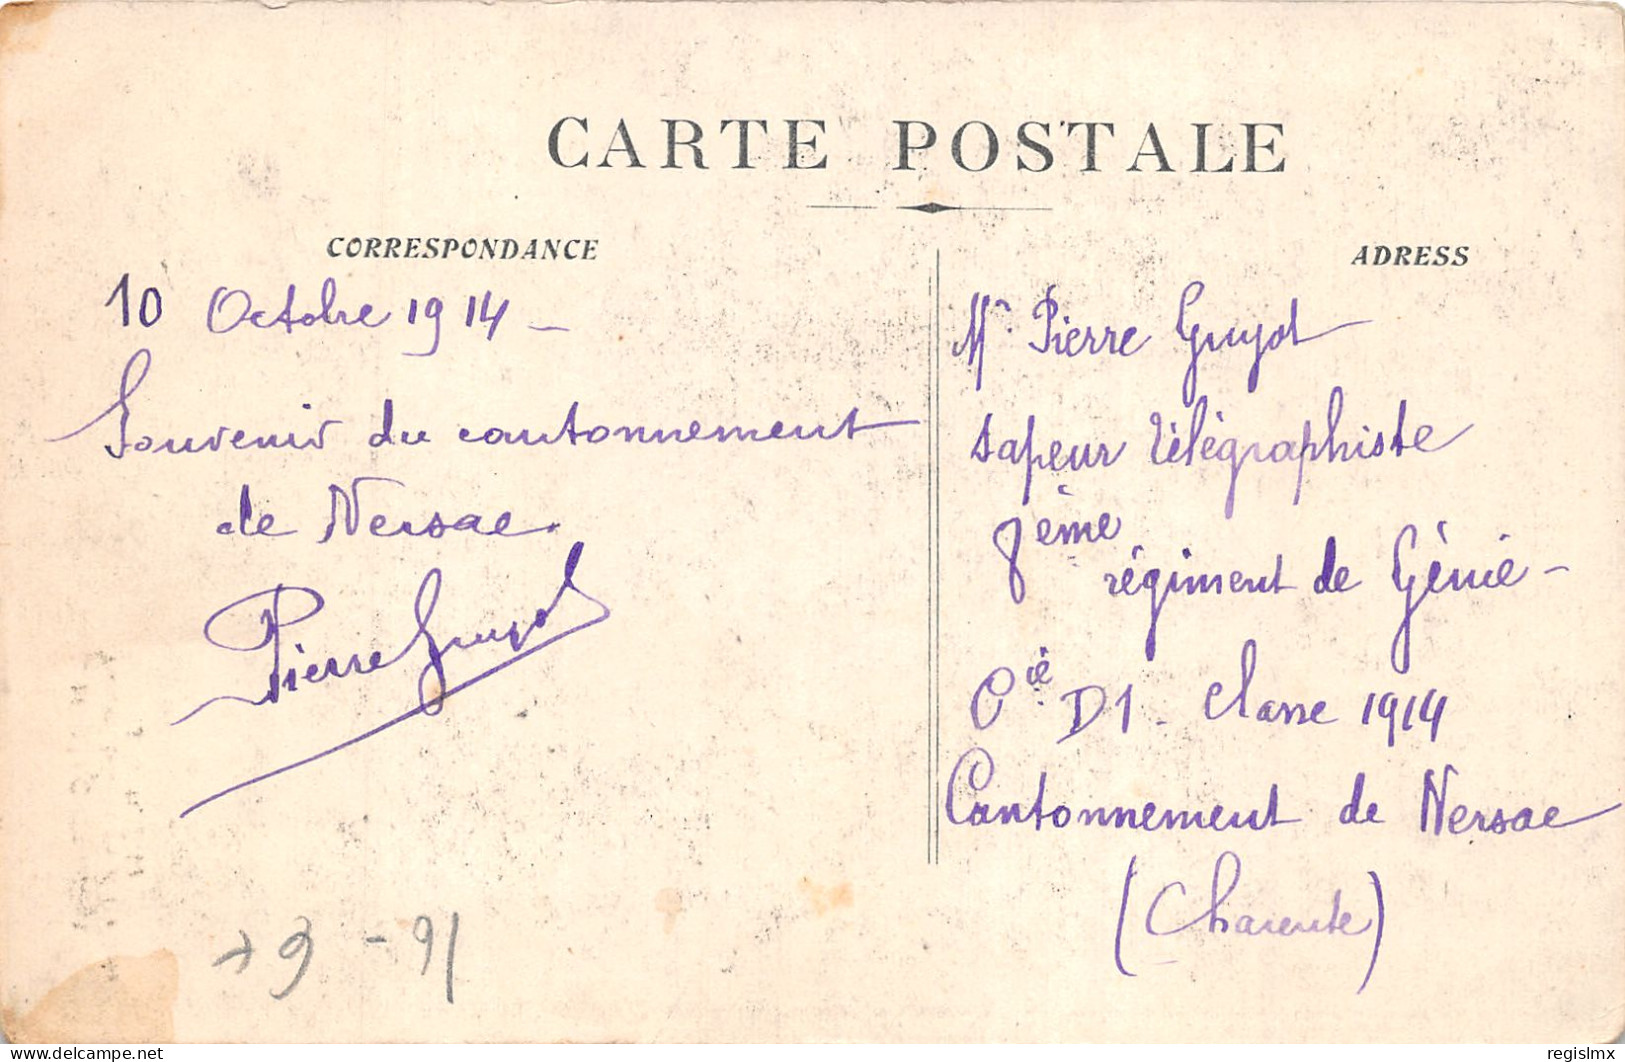 CARTE POSTALE
CORRESPONDANCE
10 Octobre 1914 -
Souvenir du cantonnement
de Nersac.
Pierre Guyot
ADRESS
Mr. Pierre Guyot
sapeur télégraphiste
8ème
régiment de Génie -
Cie. D1 - Classe 1914
Cantonnement de Nersac
(Charente)
www.delcampe.net
regislmx